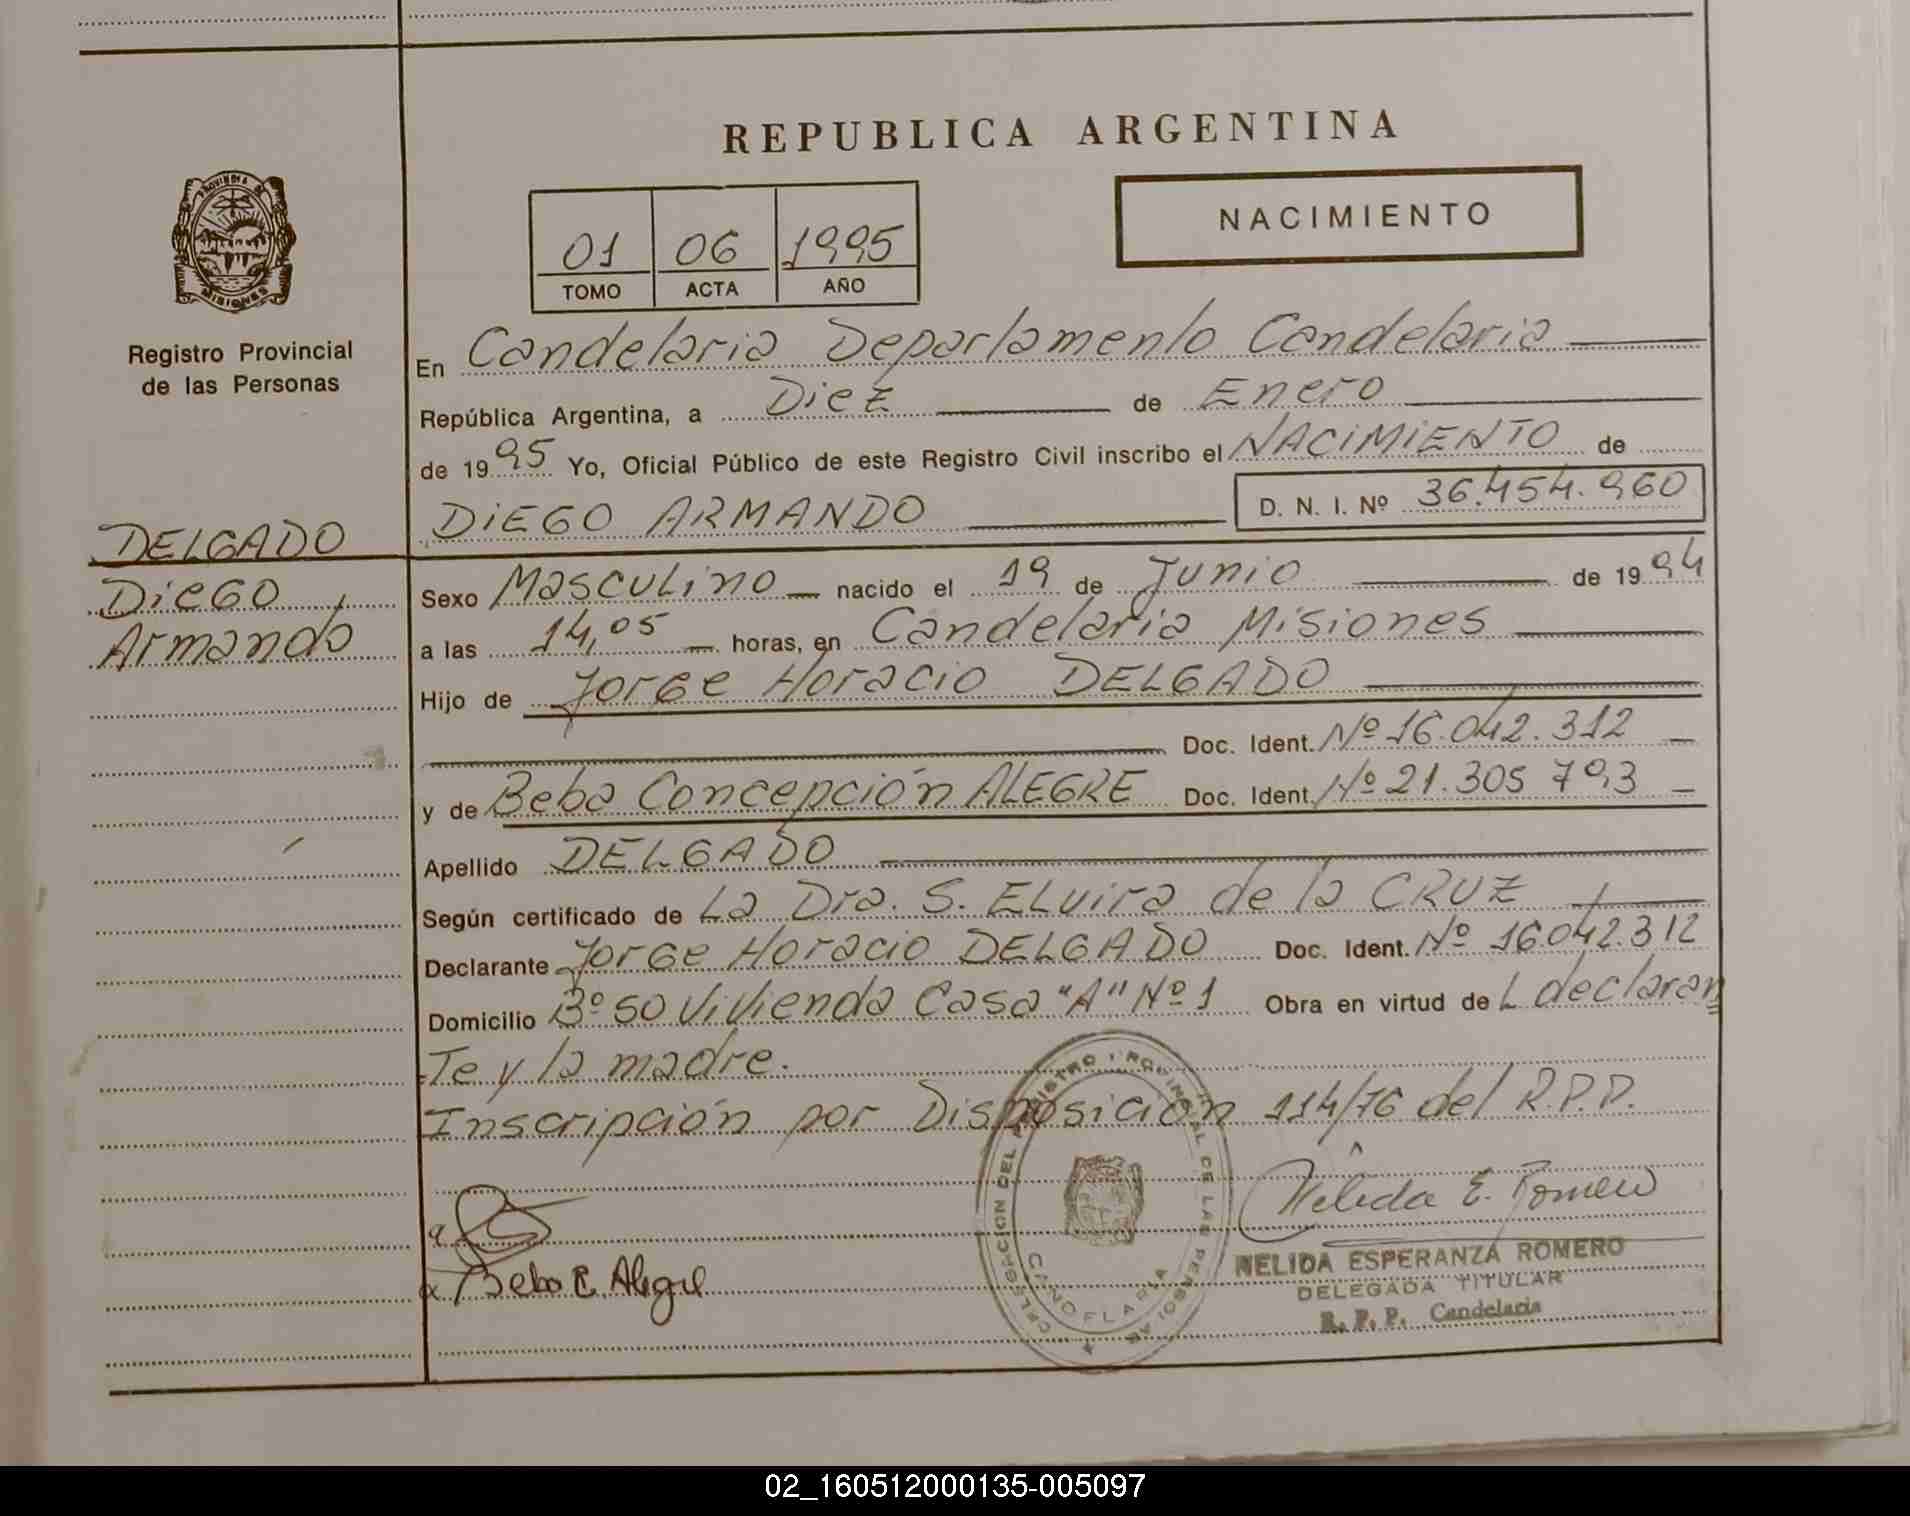 REPUBLICA ARGENTINA
PROVINCIA DE
MISIONES
Registro Provincial
de las Personas
01 06 1995
TOMO ACTA AÑO
NACIMIENTO
En Candelaria Departamento Candelaria
República Argentina, a Diez de Enero
de 1995 Yo, Oficial Público de este Registro Civil inscribo el NACIMIENTO de
DIEGO ARMANDO D. N. I. Nº 36.454.960
DELGADO
Diego
Armando
Sexo Masculino nacido el 19 de Junio de 1994
a las 14,05 horas, en Candelaria Misiones
Hijo de Jorge Horacio DELGADO
Doc. Ident. Nº 16.042.312
y de Beba Concepción ALEGRE Doc. Ident. Nº 21.305 793
Apellido DELGADO
Según certificado de La Dra. S. ELvira de la CRUZ
Declarante Jorge Horacio DELGADO Doc. Ident. Nº 16042312
Domicilio Bº 50 Vivienda Casa "A" Nº 1 Obra en virtud de L declaran
Te y la madre.
Inscripción por Disposición 114/76 del R.P.P.
Nélida E. Romero
NELIDA ESPERANZA ROMERO
DELEGADA TITULAR
R. P. P. Candelaria
Beba C. Alegre
02_160512000135-005097